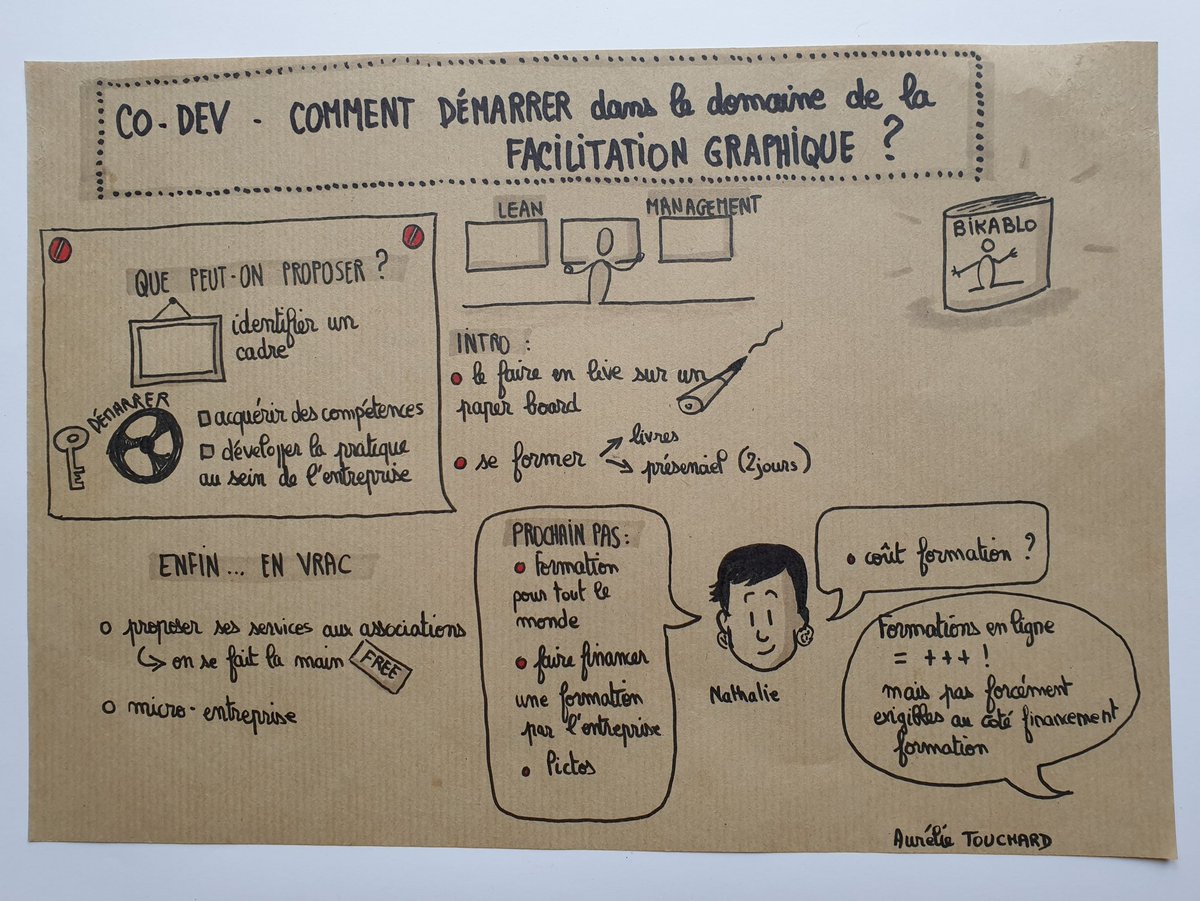 CO-DEV - COMMENT DÉMARRER dans le domaine de la
FACILITATION GRAPHIQUE ?
QUE PEUT-ON PROPOSER ?
identifier un
cadre
DÉMARRER
acquérir des compétences
développer la pratique
au sein de l'entreprise
LEAN MANAGEMENT
BIKABLO
INTRO :
le faire en live sur un
paper board
se former
livres
présenciel (2 jours)
ENFIN... EN VRAC
proposer ses services aux associations
on se fait la main
FREE
micro-entreprise
PROCHAIN PAS :
Formation
pour tout le
monde
faire financer
une formation
par l'entreprise
Pictos
Nathalie
coût formation ?
Formations en ligne
= + + + !
mais pas forcément
exigibles au côté financement
formation
Aurélie TOUCHARD